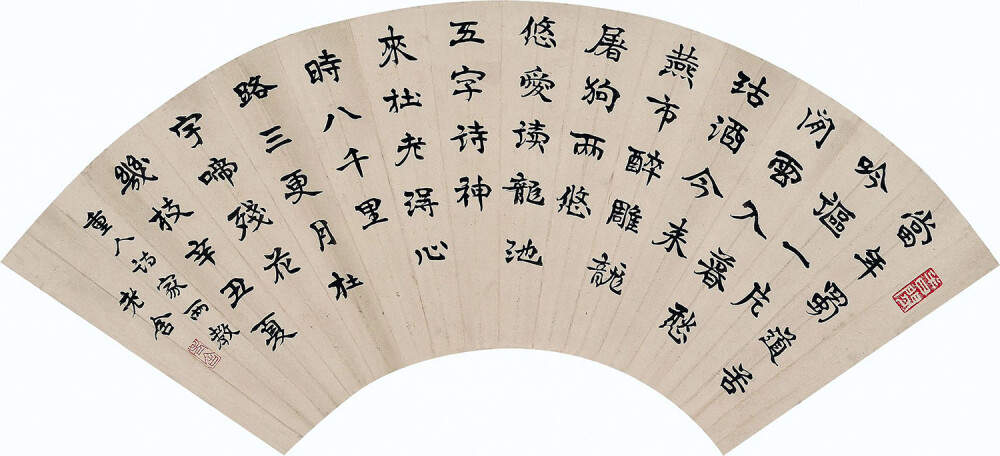 當年蜀道苦
吟謳一片
閑雲入暮愁
沽酒今来
燕市醉雕龍
屠狗兩悠
悠愛读龍池
五字诗神
來杜老得心
時八千里
路三更月杜
宇啼殘花
幾枝辛丑夏
重人诗家两教
老舍